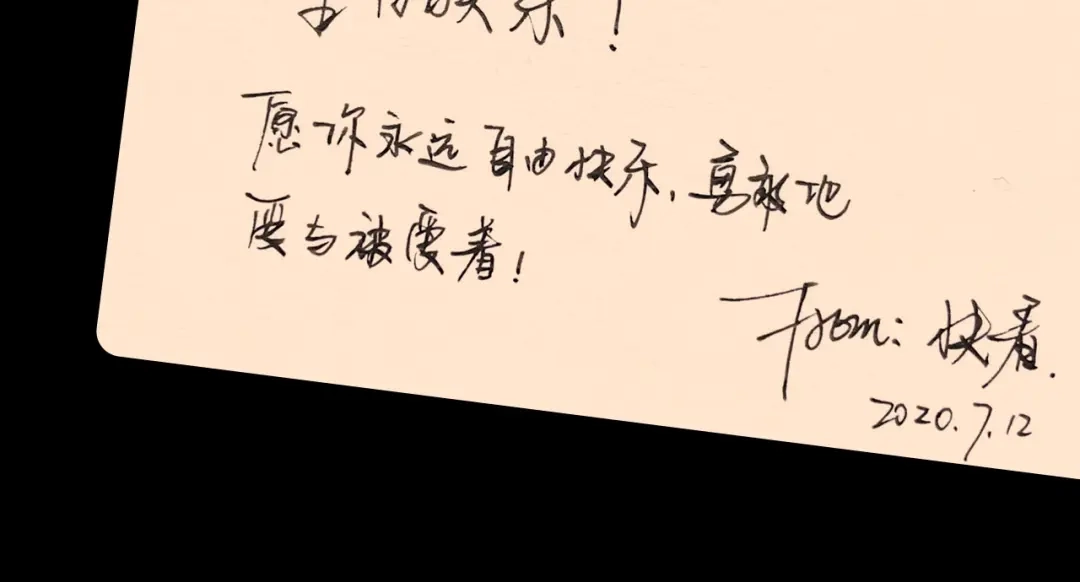 生日快乐！
愿你永远自由快乐，真诚地
爱与被爱着！
From: 快看.
2020.7.12